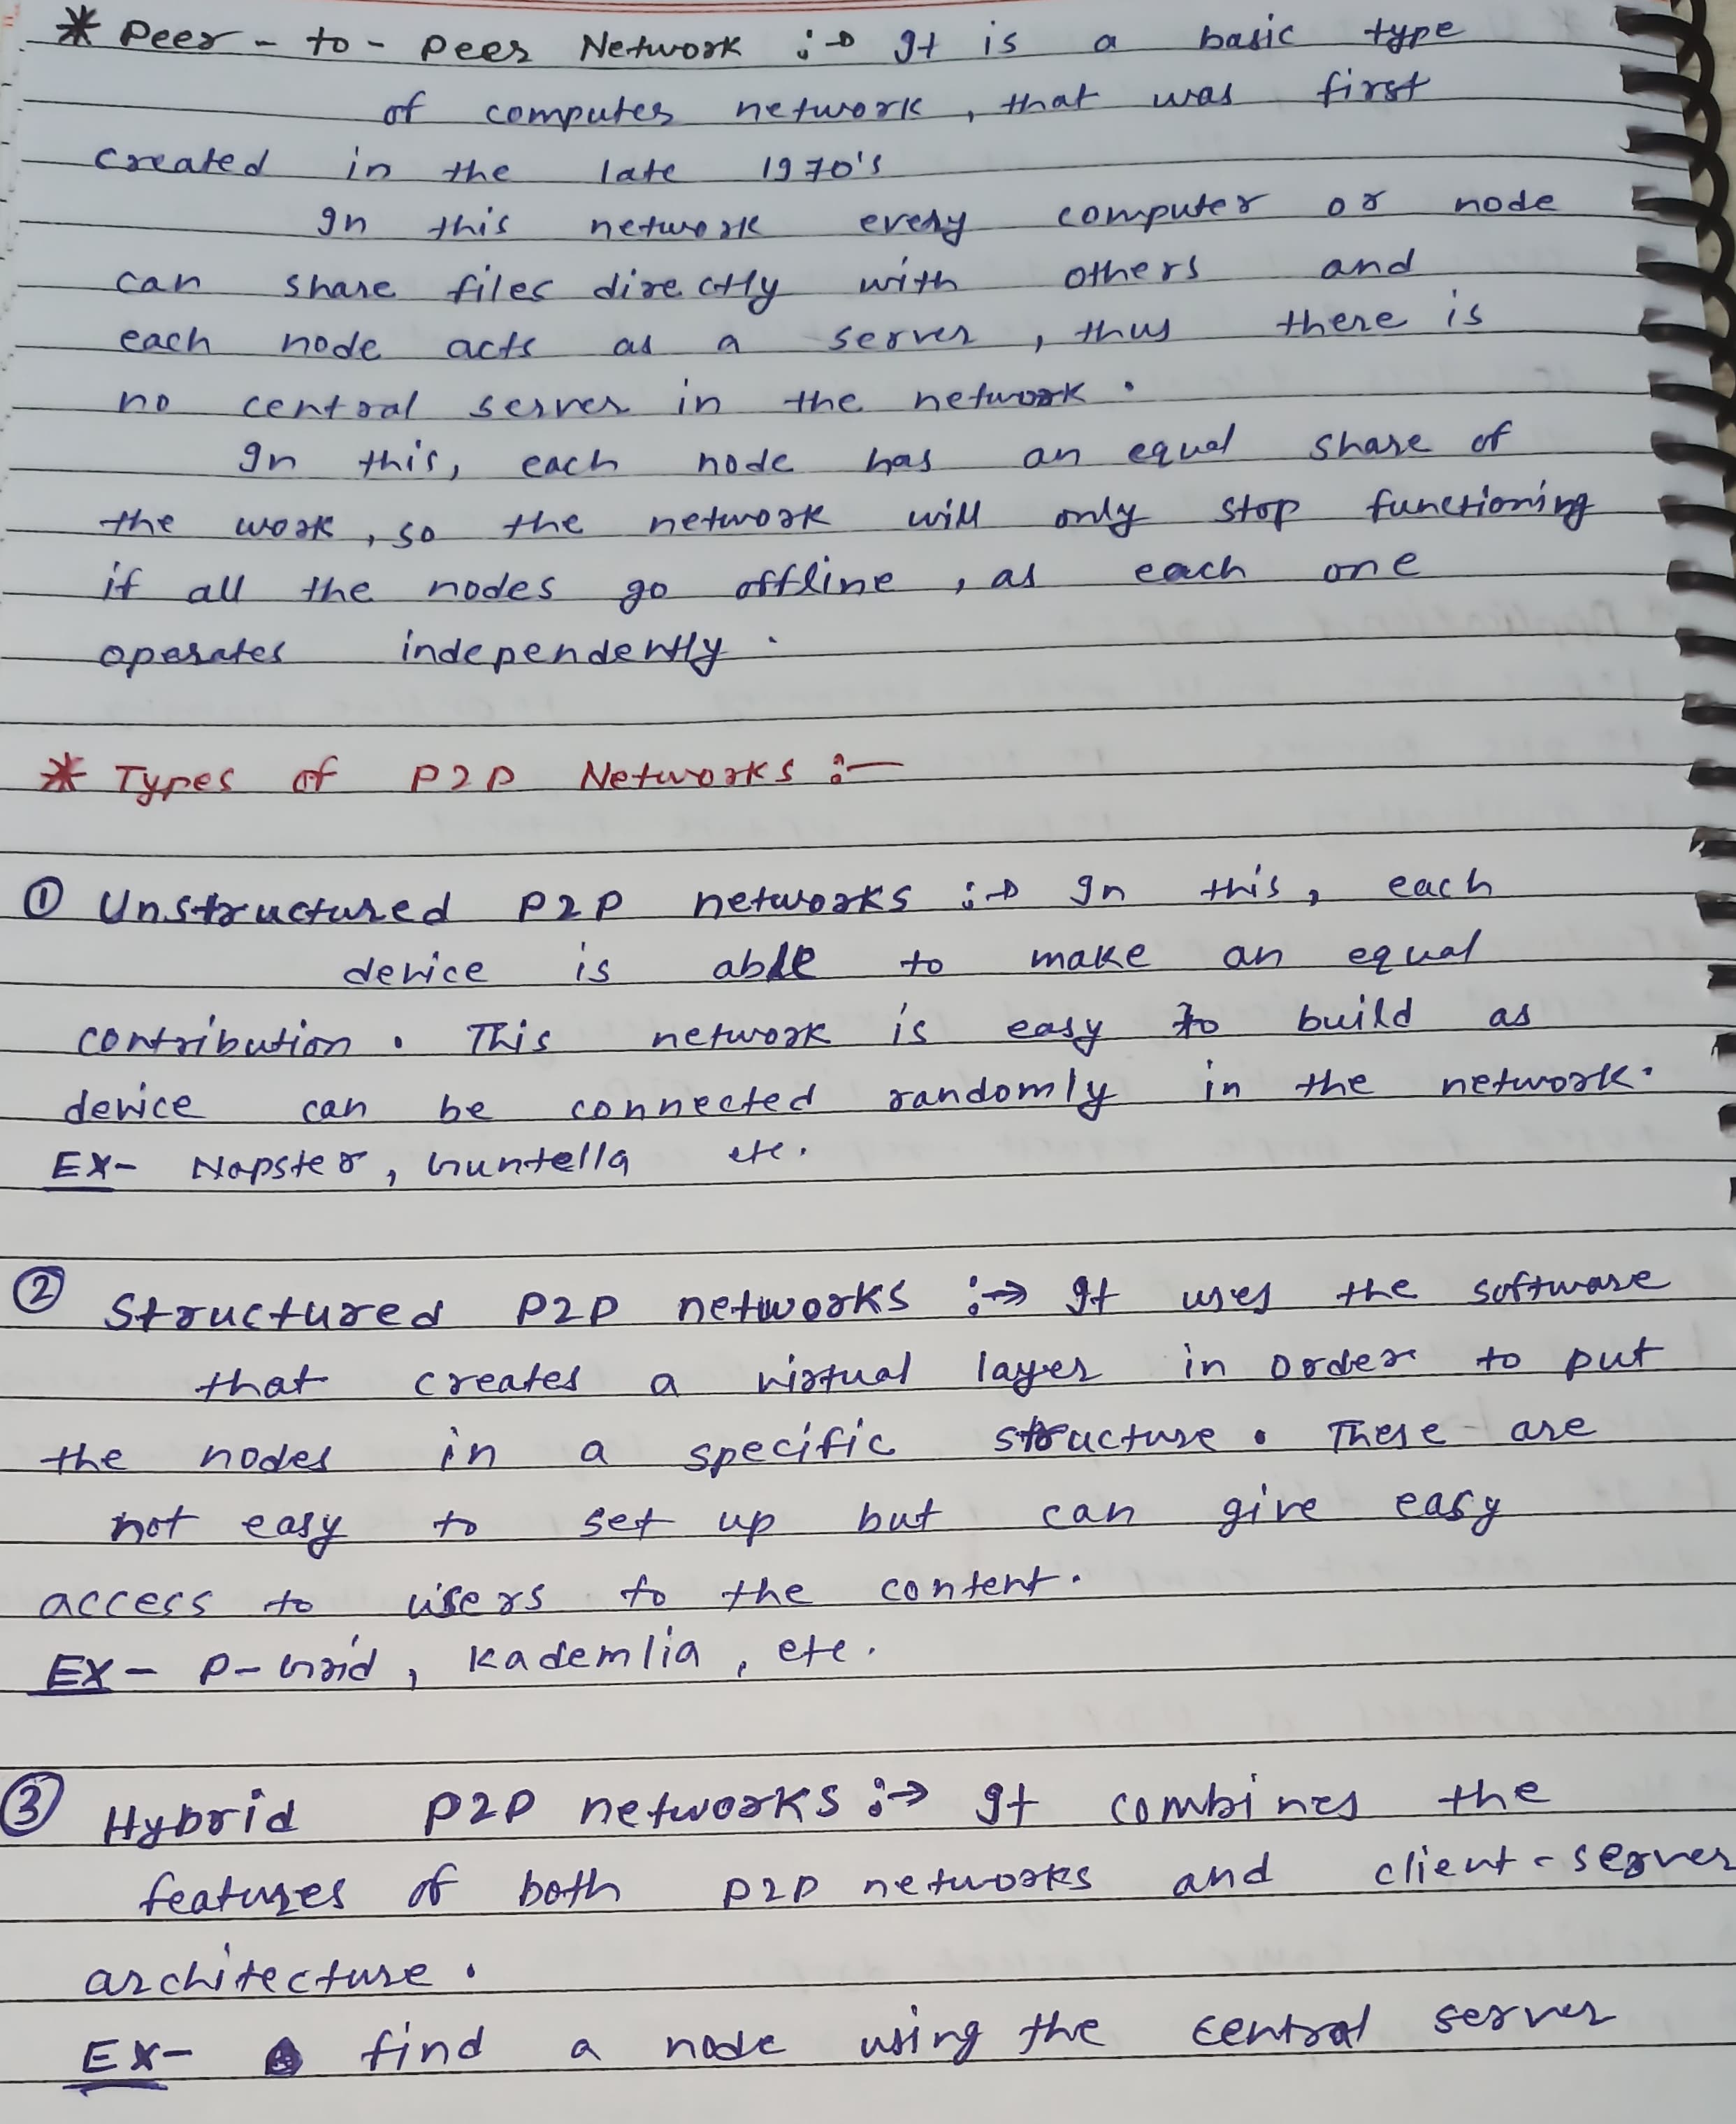 * Peer-to-Peer Network :→ It is a basic type
of computer network, that was first
created in the late 1970's
In this network every computer or node
can share files directly with others and
each node acts as a server, thus there is
no central server in the network.
In this, each node has an equal share of
the work, so the network will only stop functioning
if all the nodes go offline, as each one
operates independently.
* Types of P2P Networks :-
① Unstructured P2P networks :→ In this, each
device is able to make an equal
contribution. This network is easy to build as
device can be connected randomly in the network.
EX- Napster, Gnuntella etc.
② Structured P2P networks :→ It uses the software
that creates a virtual layer in order to put
the nodes in a specific structure. These are
not easy to set up but can give easy
access to users to the content.
EX- P-Grid, Kademlia, etc.
③ Hybrid P2P networks :→ It combines the
features of both P2P networks and client-server
architecture.
EX- find a node using the central server